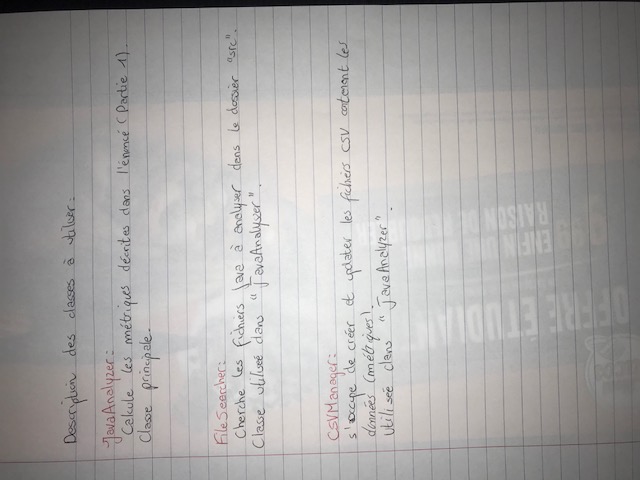 Description des classes à utiliser:
JavaAnalyzer:
Calcule les métriques décrites dans l'énoncé (Partie 1).
Classe principale.
FileSearcher:
Cherche les fichiers java à analyser dans le dossier "src".
Classe utilisée dans "JavaAnalyser".
CSVManager:
s'occupe de créer et updater les fichiers CSV contenant les
données (métriques).
Utilisée dans "JavaAnalyzer".
OFFRE ÉTUDIA
RAISON DE